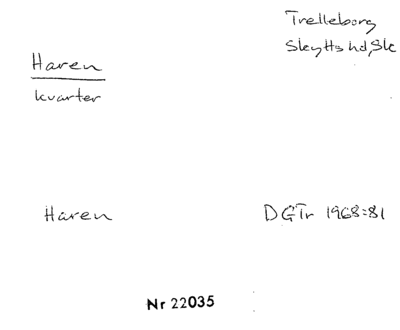 Trelleborg
Skytts hd, Sk
Haren
kvarter
Haren
DGTr 1968:81
Nr 22035